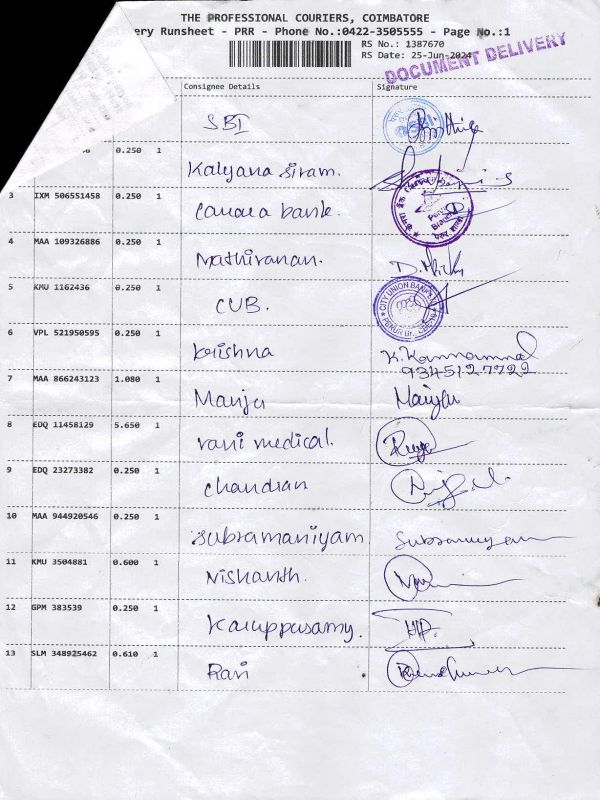 THE PROFESSIONAL COURIERS, COIMBATORE
ery Runsheet - PRR - Phone No.:0422-3505555 - Page No.:1
RS No.: 1387670
RS Date: 25-Jun-2024
DOCUMENT DELIVERY
Consignee Details Signature
SBI
0.250 1
Kalyana Siram.
3 IXM 506551458 0.250 1
Canara bank.
4 MAA 109326886 0.250 1
Mathivanan.
5 KMU 1162436 0.250 1
CUB.
CITY UNION BANK
6 VPL 521950595 0.250 1
krishna K. Kannammal
9345127722
7 MAA 866243123 1.080 1
Manju Manju
8 EDQ 11458129 5.650 1
rani medical.
9 EDQ 23273382 0.250 1
chandran
10 MAA 944920546 0.250 1
Subramaniyam
11 KMU 3504881 0.600 1
Nishanth.
12 GPM 383539 0.250 1
Karuppusamy.
13 SLM 348925462 0.610 1
Ravi